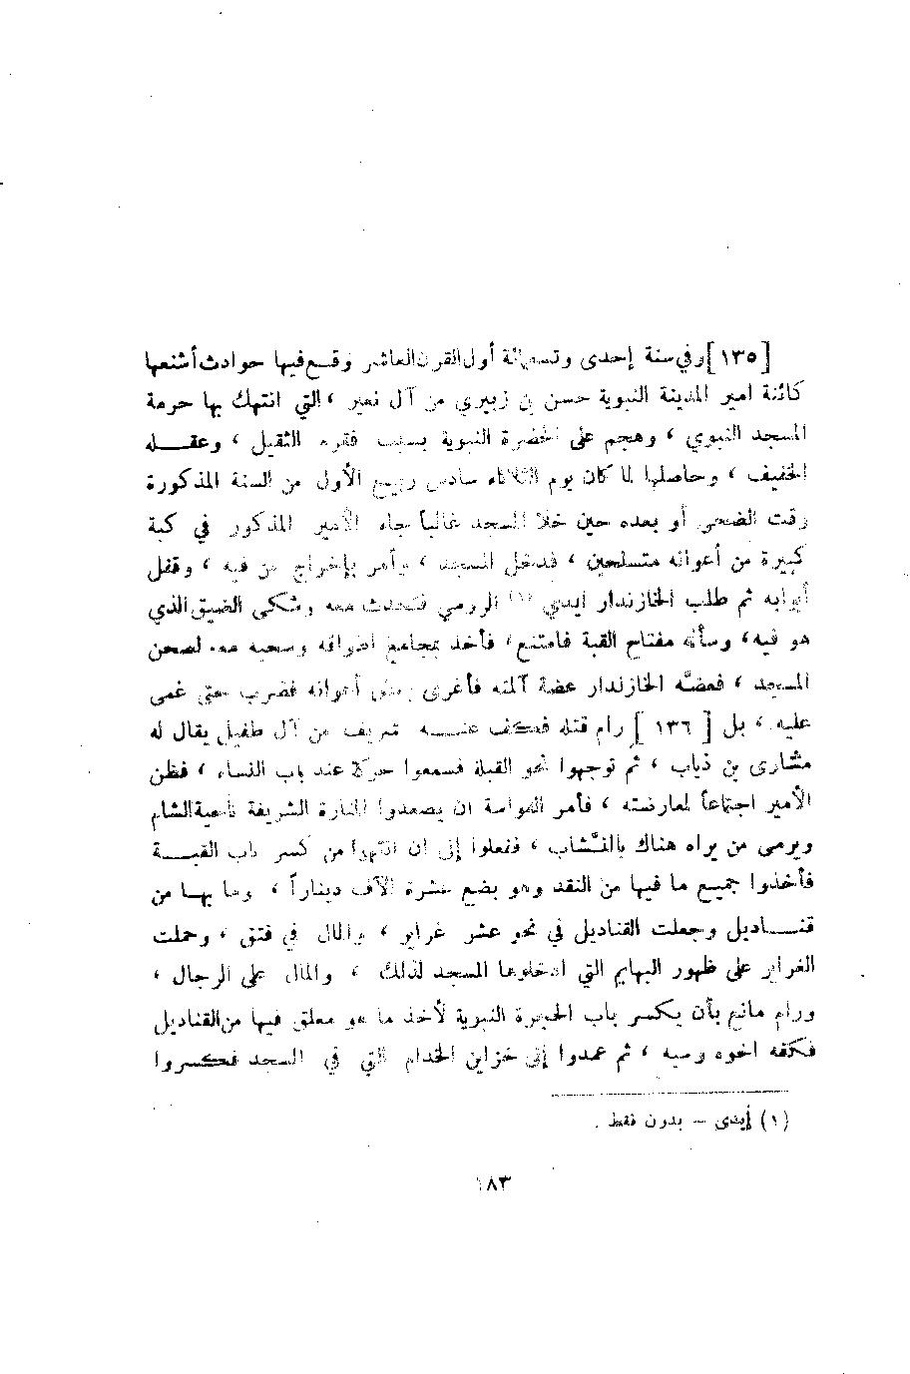 [١٣٥] وفي سنة إحدى وتسعمائة أول القرن العاشر وقع فيها حوادث أشنعها
كائنة امير المدينة النبوية حسن بن زبيري من آل نعير ، التي انتهك بها حرمة
المسجد النبوي ، وهجم على الحضرة النبوية بسبب فقره الثقيل ، وعقله
الخفيف ، وحاصلها لما كان يوم الثلاثاء سادس ربيع الأول من السنة المذكورة
وقت الضحى أو بعده حين خلا المسجد غالباً جاء الأمير المذكور في كبة
كبيرة من أعوانه متسلحين ، فدخل المسجد ، وأمر بإخراج من فيه ، وقفل
أبوابه ثم طلب الخازندار ايدي (١) الرومي فتحدث معه وشكى الضيق الذي
هو فيه ، وسأله مفتاح القبة فامتنع ، فأخذ بمجامع اطواقه وسحبه معه لصحن
المسجد ، فعضَّه الخازندار عضة آلمته فأغرى بعض أعوانه فضرب حتى غمى
عليه ، بل [ ١٣٦ ] رام قتله فكف عنه شريف من آل طفيل يقال له
مشارى بن ذياب ، ثم توجهوا نحو القبلة فسمعوا حركة عند باب النساء ، فظن
الأمير اجتماعاً لمعارضته ، فأمر القواسة ان يصعدوا المنارة الشريفة ناحية الشام
ويرمى من يراه هناك بالنشَّاب ، ففعلوا إلى ان انتهوا من كسر باب القبة
فأخذوا جميع ما فيها من النقد وهو بضع عشرة الآف ديناراً ، وما بها من
قناديل وجعلت القناديل في نحو عشر غراير ، والمال في فتق ، وحملت
الغراير على ظهور البهايم التي ادخلوها المسجد لذلك ، والمال على الرجال ،
ورام مانع بأن يكسر باب الحجرة النبوية لأخذ ما هو معلق فيها من القناديل
فكفه اخوه وسبه ، ثم عمدوا إلى خزاين الخدام التي في المسجد فكسروا
(١) أيدى – بدون نقط .
١٨٣